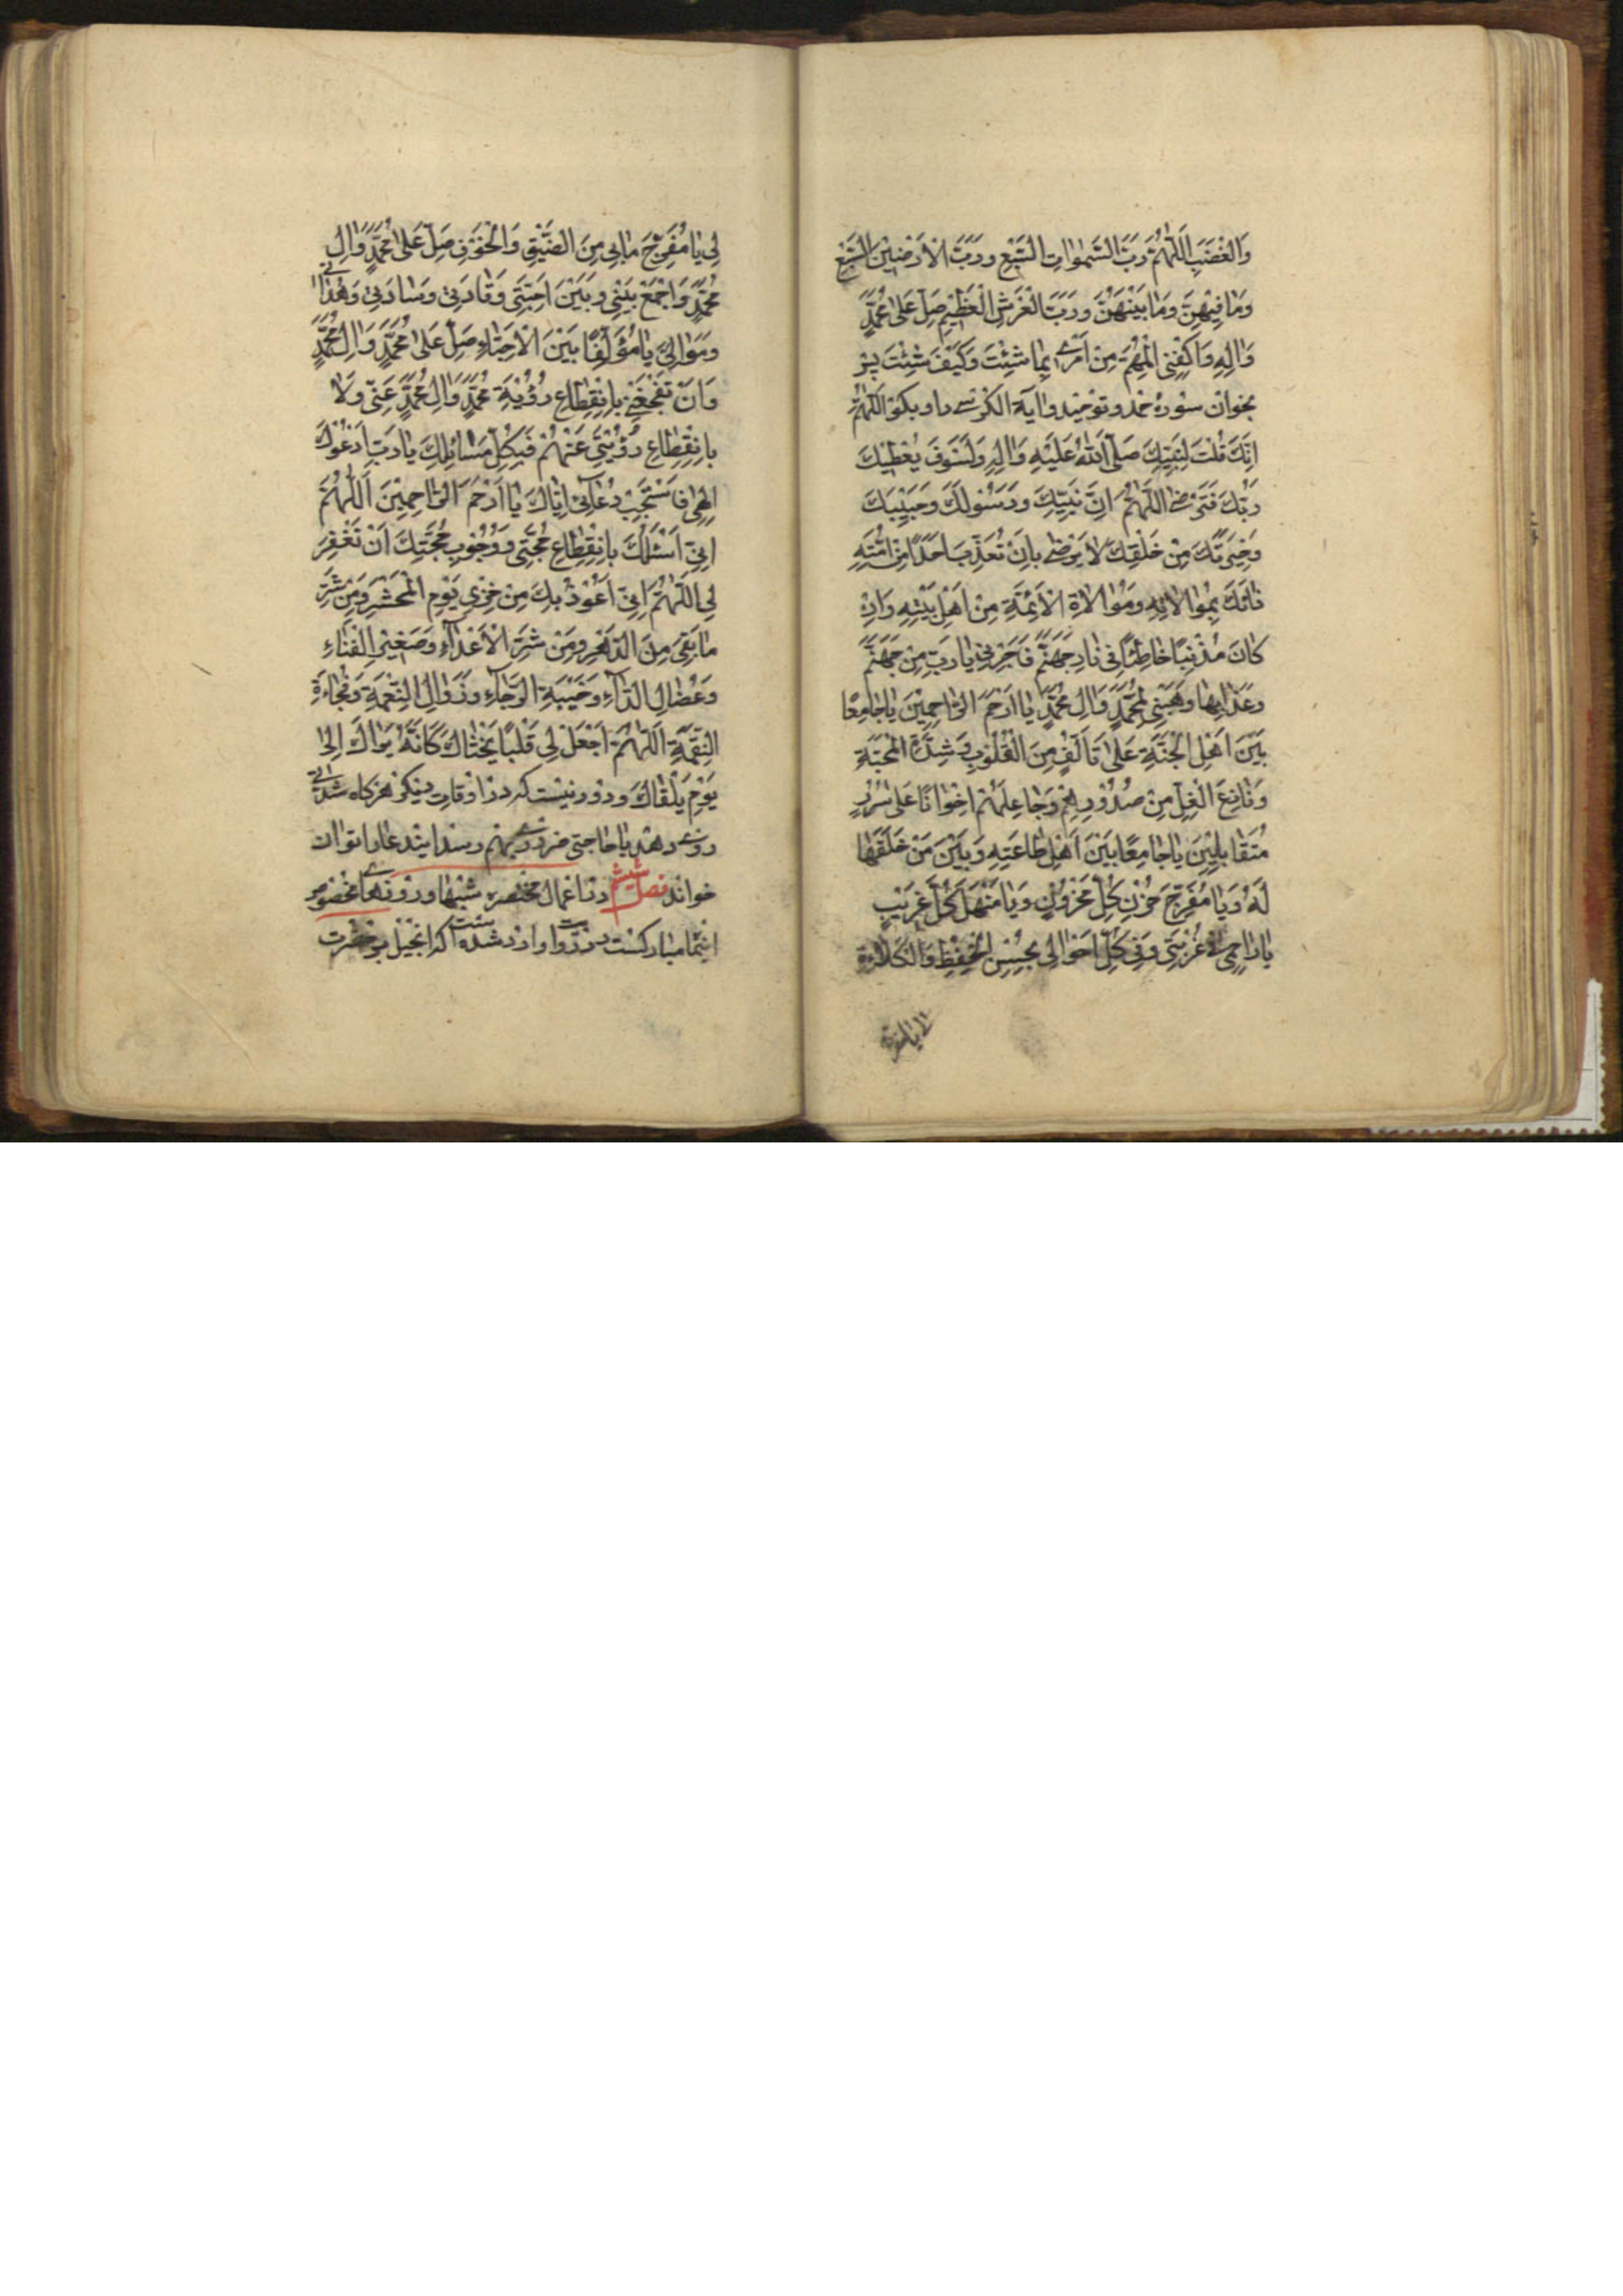 وَالْغَضَبِ اَللّٰهُمَّ رَبَّ السَّمٰوَاتِ السَّبْعِ وَرَبَّ الْاَرَضِيْنَ السَّبْعِ
وَمَا فِيْهِنَّ وَمَا بَيْنَهُنَّ وَرَبَّ الْعَرْشِ الْعَظِيْمِ صَلِّ عَلٰى مُحَمَّدٍ
وَاٰلِهِ وَاكْفِنِى الْمُهِمَّ مِنْ اَمْرِى بِمَا شِئْتَ وَكَيْفَ شِئْتَ پس
بخوان سورهٔ حمد و توحيد و اٰية الكرسى را و بكو اَللّٰهُمَّ
اِنَّكَ قُلْتَ لِنَبِيِّكَ صَلَّى اللّٰهُ عَلَيْهِ وَاٰلِهِ وَلَسَوْفَ يُعْطِيْكَ
رَبُّكَ فَتَرْضٰى اَللّٰهُمَّ اِنَّ نَبِيَّكَ وَرَسُوْلَكَ وَحَبِيْبَكَ
وَخِيَرَتَكَ مِنْ خَلْقِكَ لَا يَرْضٰى بِاَنْ تُعَذِّبَ اَحَدًا مِنْ اُمَّتِهِ
دَانَكَ بِمُوَالَاتِهِ وَمُوَالَاةِ الْاَئِمَّةِ مِنْ اَهْلِ بَيْتِهِ وَاِنْ
كَانَ مُذْنِبًا خَاطِئًا فِى نَارِ جَهَنَّمَ فَاَجِرْنِى يَا رَبِّ مِنْ جَهَنَّمَ
وَعَذَابِهَا وَهَبْنِى لِمُحَمَّدٍ وَاٰلِ مُحَمَّدٍ يَا اَرْحَمَ الرَّاحِمِيْنَ يَا جَامِعًا
بَيْنَ اَهْلِ الْجَنَّةِ عَلٰى تَاَلُّفٍ مِنَ الْقُلُوْبِ وَشِدَّةِ الْمَحَبَّةِ
وَنَازِعَ الْغِلِّ مِنْ صُدُوْرِهِمْ وَجَاعِلَهُمْ اِخْوَانًا عَلٰى سُرُرٍ
مُتَقَابِلِيْنَ يَا جَامِعًا بَيْنَ اَهْلِ طَاعَتِهِ وَبَيْنَ مَنْ خَلَقَهَا
لَهُ وَيَا مُفَرِّجَ حُزْنِ كُلِّ مَحْزُوْنٍ وَيَا مَنْهَلَ كُلِّ غَرِيْبٍ
يَا رَاحِمِى فِى غُرْبَتِى وَفِى كُلِّ اَحْوَالِى بِحُسْنِ الْحِفْظِ وَالْكَلَاءَةِ
لِى يَا مُفَرِّجَ مَا بِى مِنَ الضِّيْقِ وَالْخَوْفِ صَلِّ عَلٰى مُحَمَّدٍ وَاٰلِ
مُحَمَّدٍ وَاجْمَعْ بَيْنِى وَبَيْنَ اَحِبَّتِى وَقَادَتِى وَسَادَتِى وَهُدَاتِى
وَمَوَالِىَّ يَا مُؤَلِّفًا بَيْنَ الْاَحِبَّاءِ صَلِّ عَلٰى مُحَمَّدٍ وَاٰلِ مُحَمَّدٍ
وَاَنْ تَفْجَعَنِى بِانْقِطَاعِ رُؤْيَةِ مُحَمَّدٍ وَاٰلِ مُحَمَّدٍ عَنِّى وَلَا
بِانْقِطَاعِ رُؤْيَتِى عَنْهُمْ فَبِكُلِّ مَسَائِلِكَ يَا رَبِّ اَدْعُوْكَ
اِلٰهِى فَاسْتَجِبْ دُعَائِى اِيَّاكَ يَا اَرْحَمَ الرَّاحِمِيْنَ اَللّٰهُمَّ
اِنِّى اَسْئَلُكَ بِانْقِطَاعِ حُجَّتِى وَوُجُوْبِ حُجَّتِكَ اَنْ تَغْفِرَ
لِى اَللّٰهُمَّ اِنِّى اَعُوْذُ بِكَ مِنْ خِزْىِ يَوْمِ الْمَحْشَرِ وَمِنْ شَرِّ
مَا بَقِىَ مِنَ الدَّهْرِ وَمِنْ شَرِّ الْاَعْدَاءِ وَصَغِيْرِ الْفَنَاءِ
وَعُضَالِ الدَّاءِ وَخَيْبَةِ الرَّجَاءِ وَزَوَالِ النِّعْمَةِ وَفُجَاءَةِ
النِّقْمَةِ اَللّٰهُمَّ اجْعَلْ لِى قَلْبًا يَخْشَاكَ كَاَنَّهُ يَرَاكَ اِلٰى
يَوْمِ يَلْقَاكَ و دور نيست كه در اوقات ديكر هركاه شدائى
روى دهد يا حاجتى ضرورى بهم رسد اين دعا را توان
خواند فصل ششم در اعمال مختصره شبها و روزها بخصوص
اينماه مباركست در روايت وارد شده است كه انجيل بر حضرت